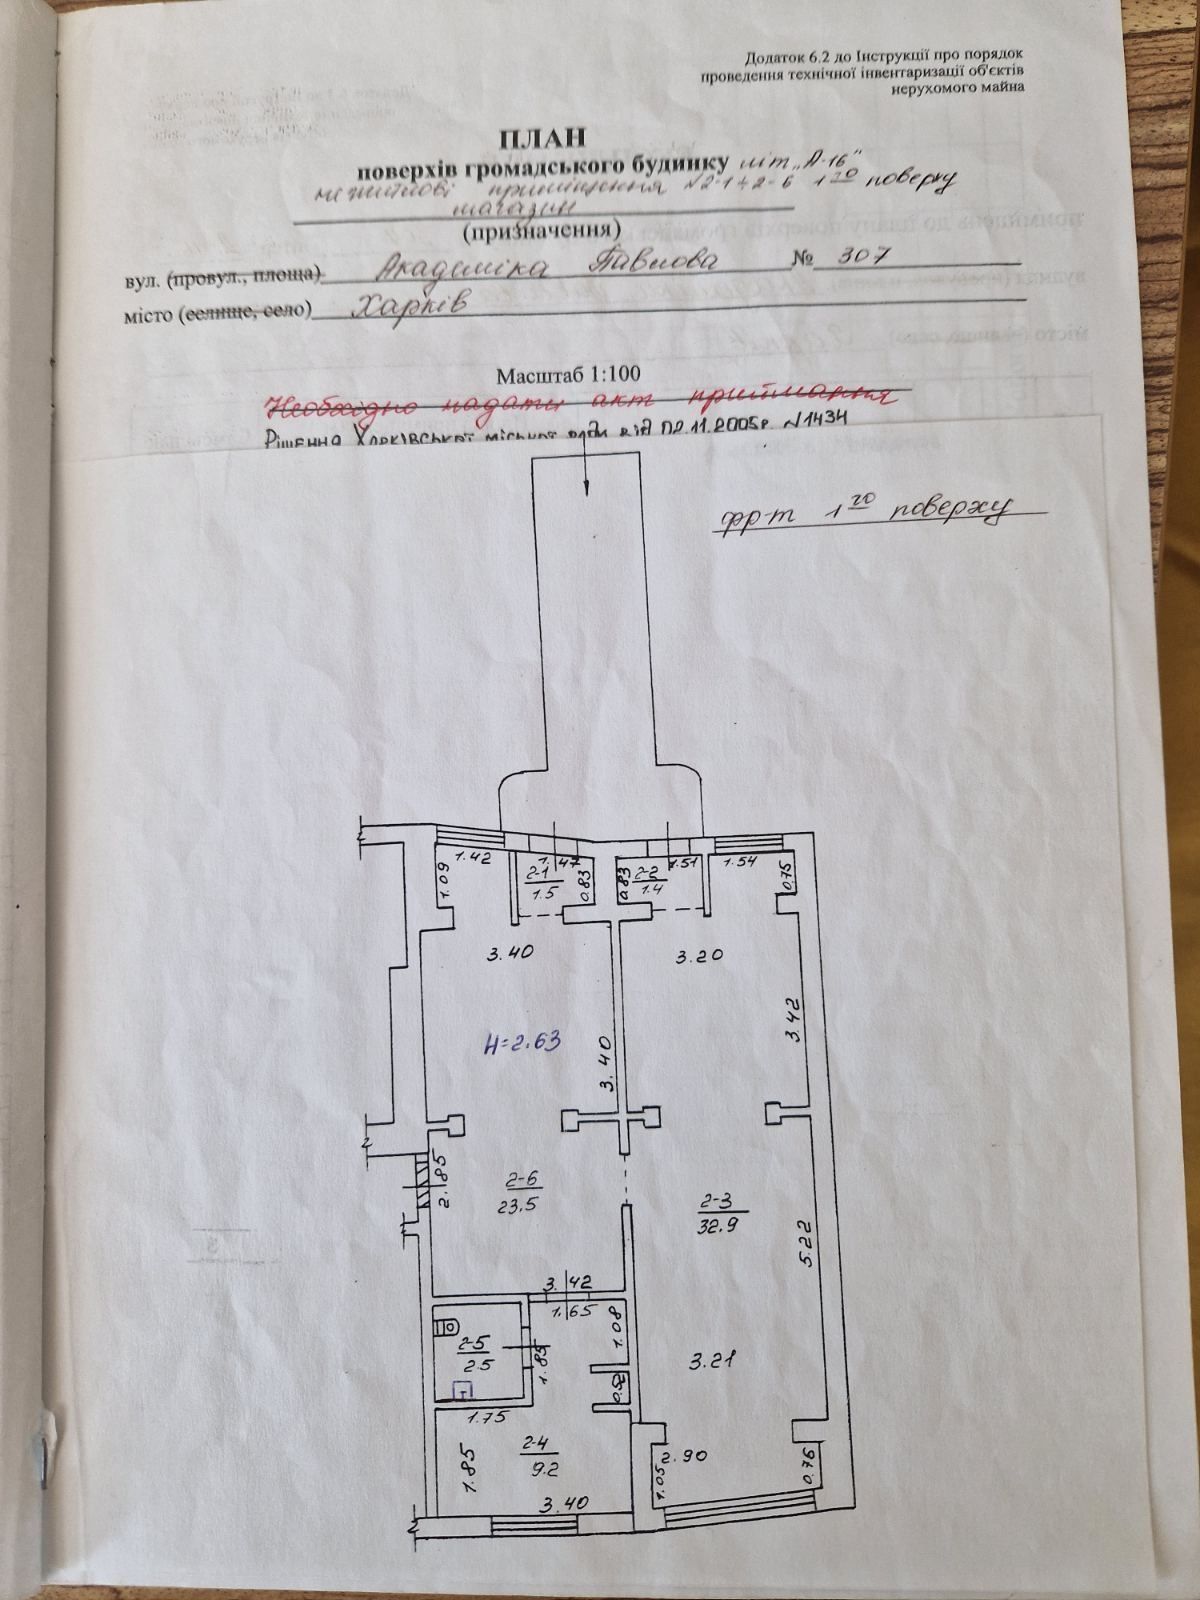 Додаток 6.2 до Інструкції про порядок
проведення технічної інвентаризації об'єктів
нерухомого майна
ПЛАН
поверхів громадського будинку літ „А-16"
нежитлові приміщення №2-1÷2-6 1го поверху
магазин
(призначення)
вул. (провул., площа) Академіка Павлова № 307
місто (селище, село) Харків
Масштаб 1:100
Необхідно надати акт приймання
Рішення Харківської міської ради від 02.11.2005р. №1434
фр-т 1го поверху
1.42
1.47
1.51
1.54
1.09
2-1
1.5
0.83
0.83
2-2
1.4
0.75
3.40
3.20
H=2.63
3.40
3.42
2.85
2-6
23.5
2-3
32.9
5.22
3.42
1.65
1.08
2-5
2.5
1.85
3.21
0.52
1.75
2-4
9.2
1.85
2.90
1.05
0.76
3.40